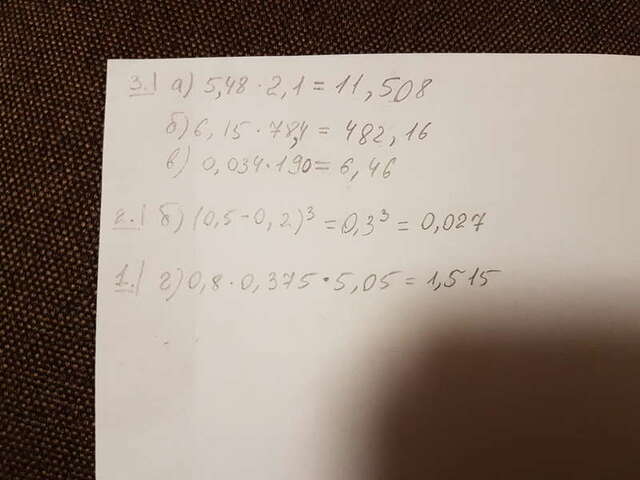 3.| а) 5,48 · 2,1 = 11,508
б) 6,15 · 78,4 = 482,16
в) 0,034 · 190 = 6,46
2.| б) (0,5 - 0,2)³ = 0,3³ = 0,027
1.| г) 0,8 · 0,375 · 5,05 = 1,515